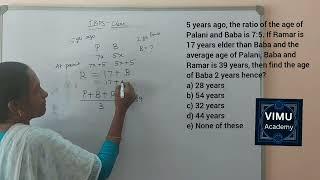 IBPS-Clerk
5 years ago, the ratio of the age of
Palani and Baba is 7:5. If Ramar is
17 years elder than Baba and the
average age of Palani, Baba and
Ramar is 39 years, then find the age
of Baba 2 years hence?
a) 28 years
b) 54 years
c) 32 years
d) 44 years
e) None of these
P B
7x 5x
B = ?
At present 7x+5 5x+5
R = 17 + B
P + B +
3
VIMU
Academy